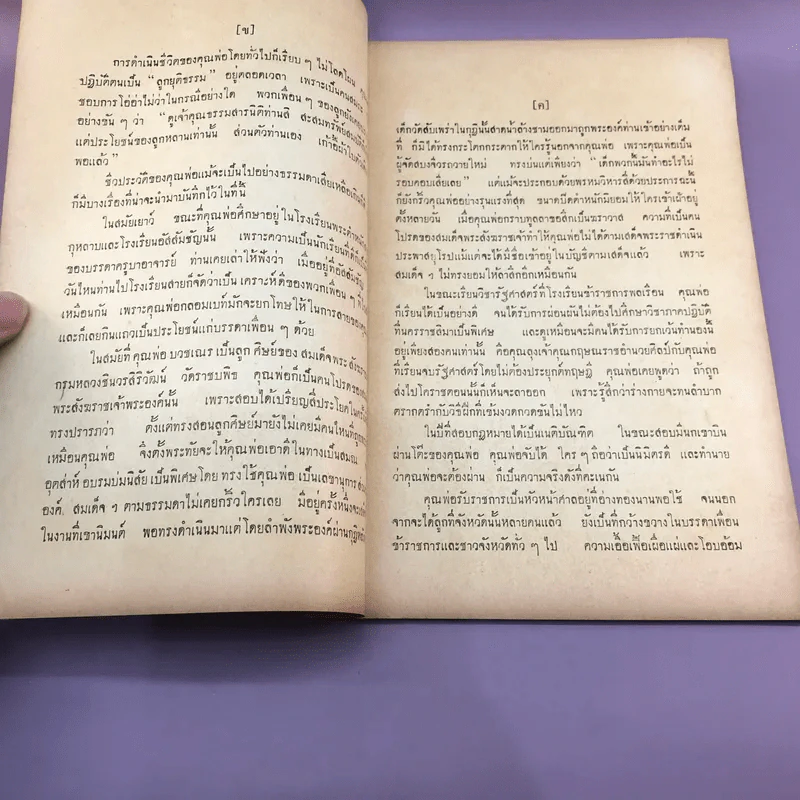 [ข]
การดำเนินชีวิตของคุณพ่อโดยทั่วไปก็เรียบ ๆ ไม่โลดโผน
ปฏิบัติตนเป็น "ลูกยุติธรรม" อยู่ตลอดเวลา เพราะเป็นคนสมถะ
ชอบการโอ่อ่าไม่ว่าในกรณีอย่างใด พวกเพื่อน ๆ ของลูกยัง
อย่างขัน ๆ ว่า "ดูเจ้าคุณธรรมสารนิติท่านสิ สะสมทรัพย์สมบัติ
แต่ประโยชน์ของลูกหลานเท่านั้น ส่วนตัวท่านเอง เก้าอี้ผ้าใบตัวเดียว
พอแล้ว"
ซึ่งประวัติของคุณพ่อแม้จะเป็นไปอย่างธรรมดาเสียเหลือเกิน
ก็มีบางเรื่องที่น่าจะนำมาบันทึกไว้ในที่นี้
ในสมัยเยาว์ ขณะที่คุณพ่อศึกษาอยู่ในโรงเรียนพระตำหนัก
กุหลาบและโรงเรียนอัสสัมชัญนั้น เพราะความเป็นนักเรียนที่ดี
ของบรรดาครูบาอาจารย์ ท่านเคยเล่าให้ฟังว่า เมื่ออยู่ที่อัสสัมชัญ
วันไหนท่านไปโรงเรียนสายก็จัดว่าเป็น เคราะห์ดีของพวกเพื่อน ๆ ที่
เหมือนกัน เพราะคุณพ่อกอลมเบต์มักจะยกโทษให้ในการสายของ
และก็เลยกินแถวเป็นประโยชน์แก่บรรดาเพื่อน ๆ ด้วย
ในสมัยที่คุณพ่อ บวชเณร เป็นลูก ศิษย์ของ สมเด็จ พระสังฆราช
กรมหลวงชินวรสิริวัฒน์ วัดราชบพิธ คุณพ่อก็เป็นคนโปรดของ
พระสังฆราชเจ้าพระองค์นั้น เพราะสอบได้เปรียญสี่ประโยคใน
ทรงปรารภว่า ตั้งแต่ทรงสอนลูกศิษย์มายังไม่เคยมีคนไหนที่ถูก
เหมือนคุณพ่อ จึงตั้งพระทัยจะให้คุณพ่อเอาดีในทางเป็นสมณ
อุตส่าห์ อบรมบ่มนิสัย เป็นพิเศษ โดย ทรงใช้คุณพ่อ เป็นเลขานุการ
องค์ สมเด็จ ๆ ตามธรรมดาไม่เคยกริ้วใครเลย มีอยู่ครั้งหนึ่งจะ
ในงานที่เขานิมนต์ พอทรงดำเนินมาแต่โดยลำพังพระองค์ผ่านกุฏิ
[ค]
เด็กวัดสัปเพร่าในกุฏินั้นสาดน้ำล้างชามออกมาถูกพระองค์ท่านเข้าอย่างเต็ม
ที่ ก็มิได้ทรงกระโตกกระตากให้ใครรู้นอกจากคุณพ่อ เพราะคุณพ่อเป็น
ผู้จัดสบงจีวรถวายใหม่ ทรงบ่นแต่เพียงว่า "เด็กพวกนี้มันทำอะไรไม่
รอบคอบเสียเลย" แต่แม้จะประกอบด้วยพรหมวิหารสี่ด้วยประการฉะนี้
ก็ยังกริ้วคุณพ่ออย่างรุนแรงที่สุด ขนาดปิดตำหนักมิยอมให้ใครเข้าเฝ้าอยู่
ตั้งหลายวัน เมื่อคุณพ่อกราบทูลลาออกสึกเป็นฆราวาส ความที่เป็นคน
โปรดของสมเด็จพระสังฆราชเจ้าทำให้คุณพ่อไม่ได้ตามเสด็จพระราชดำเนิน
ประพาสยุโรปแม้แต่จะได้มีชื่อเข้าอยู่ในบัญชีตามเสด็จแล้ว เพราะ
สมเด็จ ๆ ไม่ทรงยอมให้ลาสึกอีกเหมือนกัน
ในขณะเรียนวิชารัฐศาสตร์ที่โรงเรียนข้าราชการพลเรือน คุณพ่อ
ก็เรียนได้เป็นอย่างดี จนได้รับการผ่อนผันไม่ต้องไปศึกษาวิชาภาคปฏิบัติ
ที่นครราชสีมาเป็นพิเศษ และดูเหมือนจะมีคนได้รับการยกเว้นทำนองนี้
อยู่เพียงสองคนเท่านั้น คือคุณลุงเจ้าคุณกฤษณราชอำนวยศิลป์กับคุณพ่อ
ที่เรียนจบรัฐศาสตร์โดยไม่ต้องประยุกต์ทฤษฎี คุณพ่อเคยพูดว่า ถ้าถูก
ส่งไปโคราชตอนนั้นก็เห็นจะลาออก เพราะรู้สึกว่าร่างกายจะทนลำบาก
ตรากตรำกับวิธีฝึกที่เข้มงวดกวดขันไม่ไหว
ในปีที่สอบกฎหมายได้เป็นเนติบัณฑิต ในขณะสอบมีนกเขาบิน
ผ่านโต๊ะของคุณพ่อ คุณพ่อจับได้ ใคร ๆ ถือว่าเป็นนิมิตรดี และทำนาย
ว่าคุณพ่อจะต้องผ่าน ก็เป็นความจริงดังที่คะเนกัน
คุณพ่อรับราชการเป็นหัวหน้าศาลอยู่ที่อ่างทองนานพอใช้ จนนอก
จากจะได้ลูกที่จังหวัดนั้นหลายคนแล้ว ยังเป็นที่กว้างขวางในบรรดาเพื่อน
ข้าราชการและชาวจังหวัดทั่ว ๆ ไป ความเอื้อเฟื้อเผื่อแผ่และโอบอ้อม